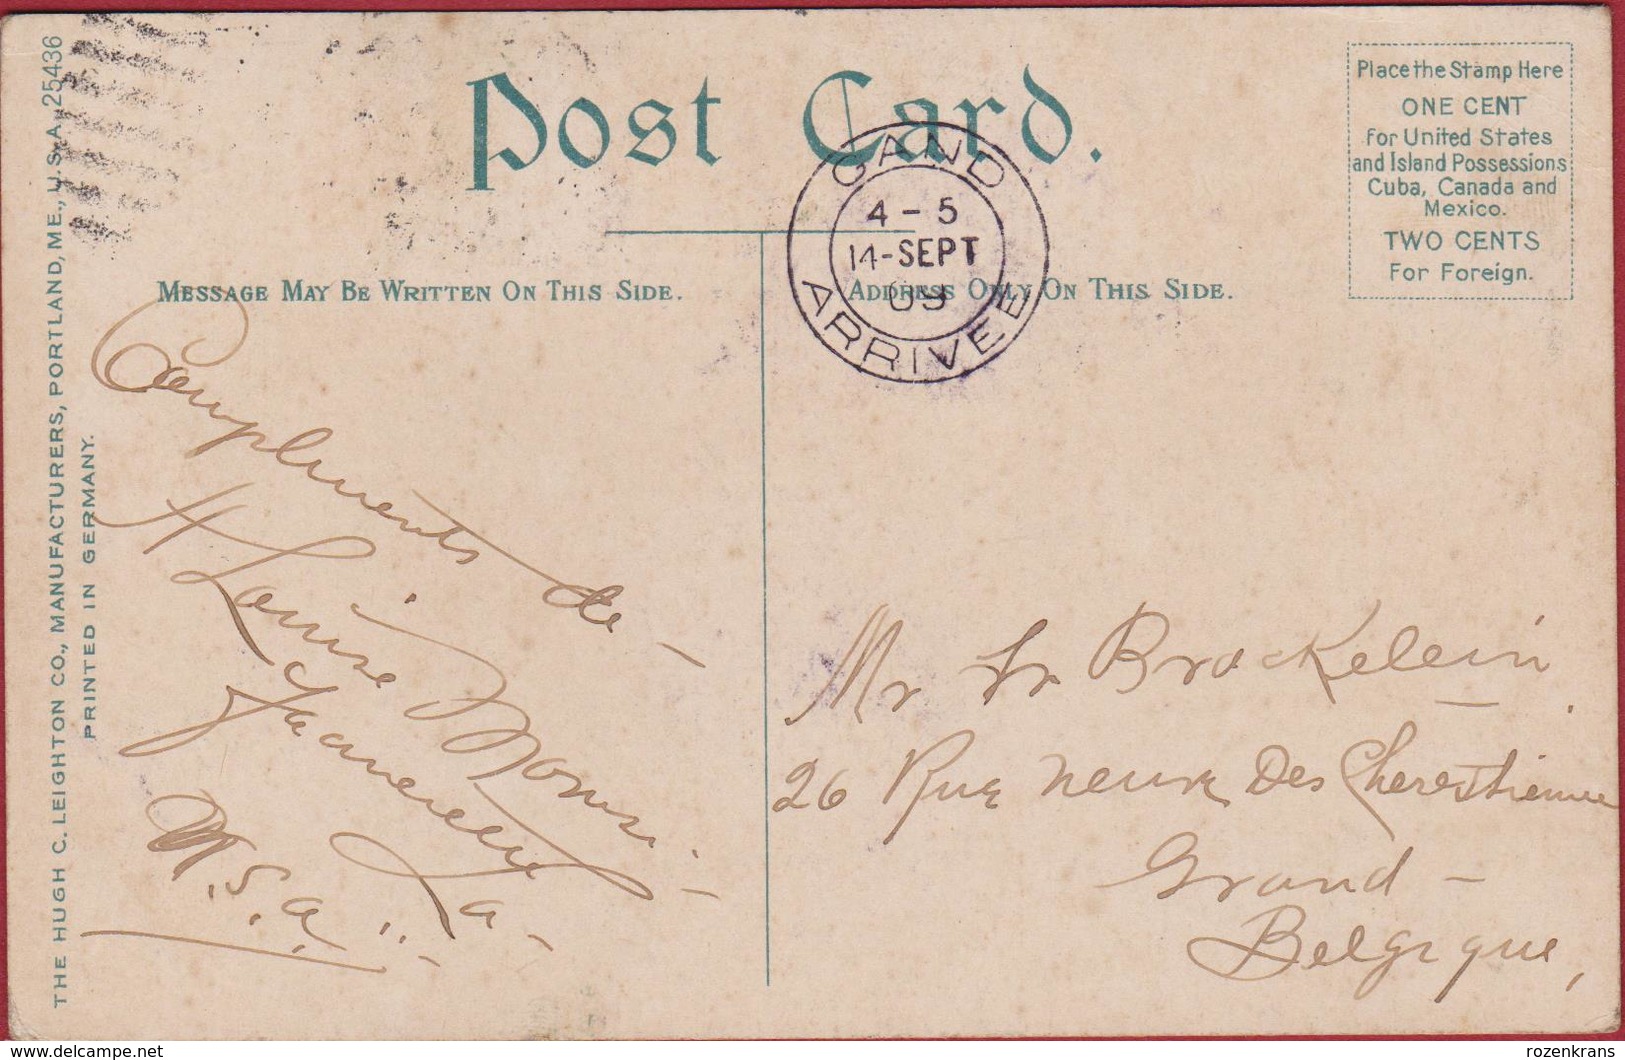 Post Card.
Place the Stamp Here
ONE CENT
for United States
and Island Possessions
Cuba, Canada and
Mexico.
TWO CENTS
For Foreign.
GAND
4-5
14-SEPT
09
ARRIVEE
MESSAGE MAY BE WRITTEN ON THIS SIDE.
ADDRESS ONLY ON THIS SIDE.
THE HUGH C. LEIGHTON CO., MANUFACTURERS, PORTLAND, ME., U.S.A. 25436
PRINTED IN GERMANY.
Compliments de
H Louise
La
U.S.a.
Mr Fr Brackelein
26 Rue neuve Des Cherestienne
Grand
Belgique,
delcampe.net
rozenkrans